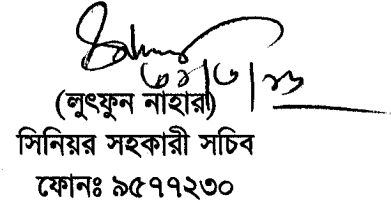 (লুৎফুন নাহার)
সিনিয়র সহকারী সচিব
ফোনঃ ৯৫৭৭২৩০